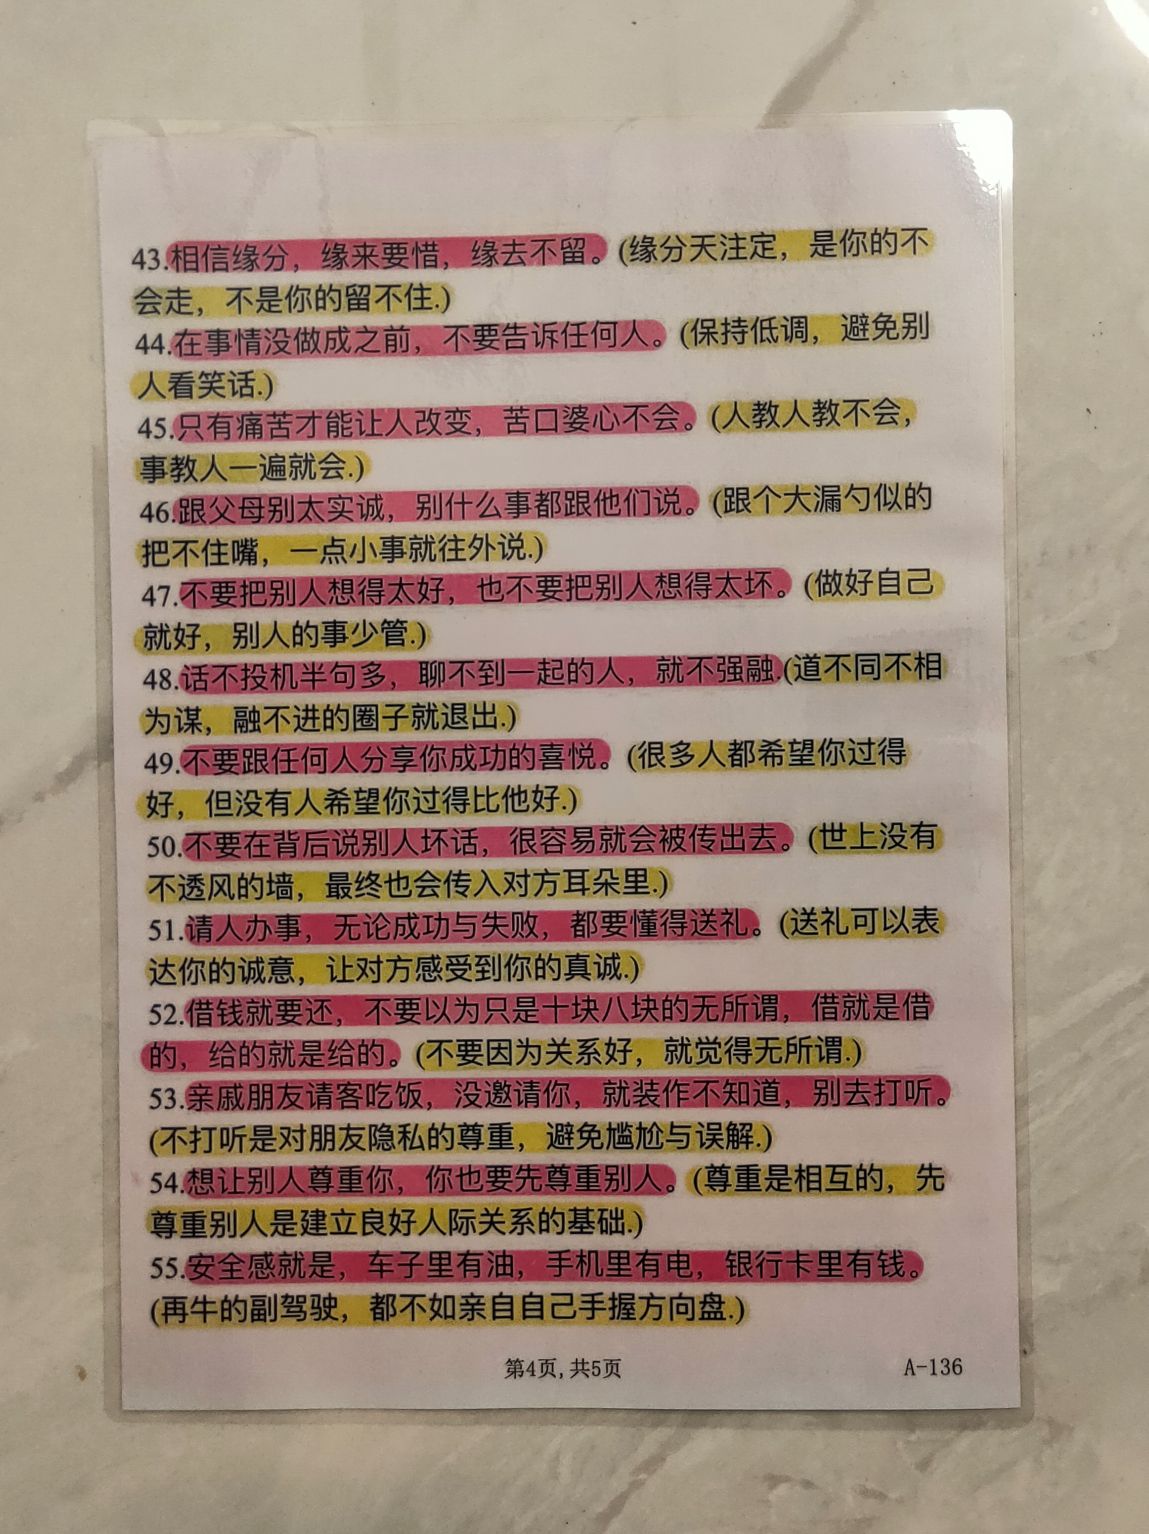 43.相信缘分，缘来要惜，缘去不留。(缘分天注定，是你的不
会走，不是你的留不住.)
44.在事情没做成之前，不要告诉任何人。(保持低调，避免别
人看笑话.)
45.只有痛苦才能让人改变，苦口婆心不会。(人教人教不会，
事教人一遍就会.)
46.跟父母别太实诚，别什么事都跟他们说。(跟个大漏勺似的
把不住嘴，一点小事就往外说.)
47.不要把别人想得太好，也不要把别人想得太坏。(做好自己
就好，别人的事少管.)
48.话不投机半句多，聊不到一起的人，就不强融.(道不同不相
为谋，融不进的圈子就退出.)
49.不要跟任何人分享你成功的喜悦。(很多人都希望你过得
好，但没有人希望你过得比他好.)
50.不要在背后说别人坏话，很容易就会被传出去。(世上没有
不透风的墙，最终也会传入对方耳朵里.)
51.请人办事，无论成功与失败，都要懂得送礼。(送礼可以表
达你的诚意，让对方感受到你的真诚.)
52.借钱就要还，不要以为只是十块八块的无所谓，借就是借
的，给的就是给的。(不要因为关系好，就觉得无所谓.)
53.亲戚朋友请客吃饭，没邀请你，就装作不知道，别去打听。
(不打听是对朋友隐私的尊重，避免尴尬与误解.)
54.想让别人尊重你，你也要先尊重别人。(尊重是相互的，先
尊重别人是建立良好人际关系的基础.)
55.安全感就是，车子里有油，手机里有电，银行卡里有钱。
(再牛的副驾驶，都不如亲自自己手握方向盘.)
第4页,共5页
A-136